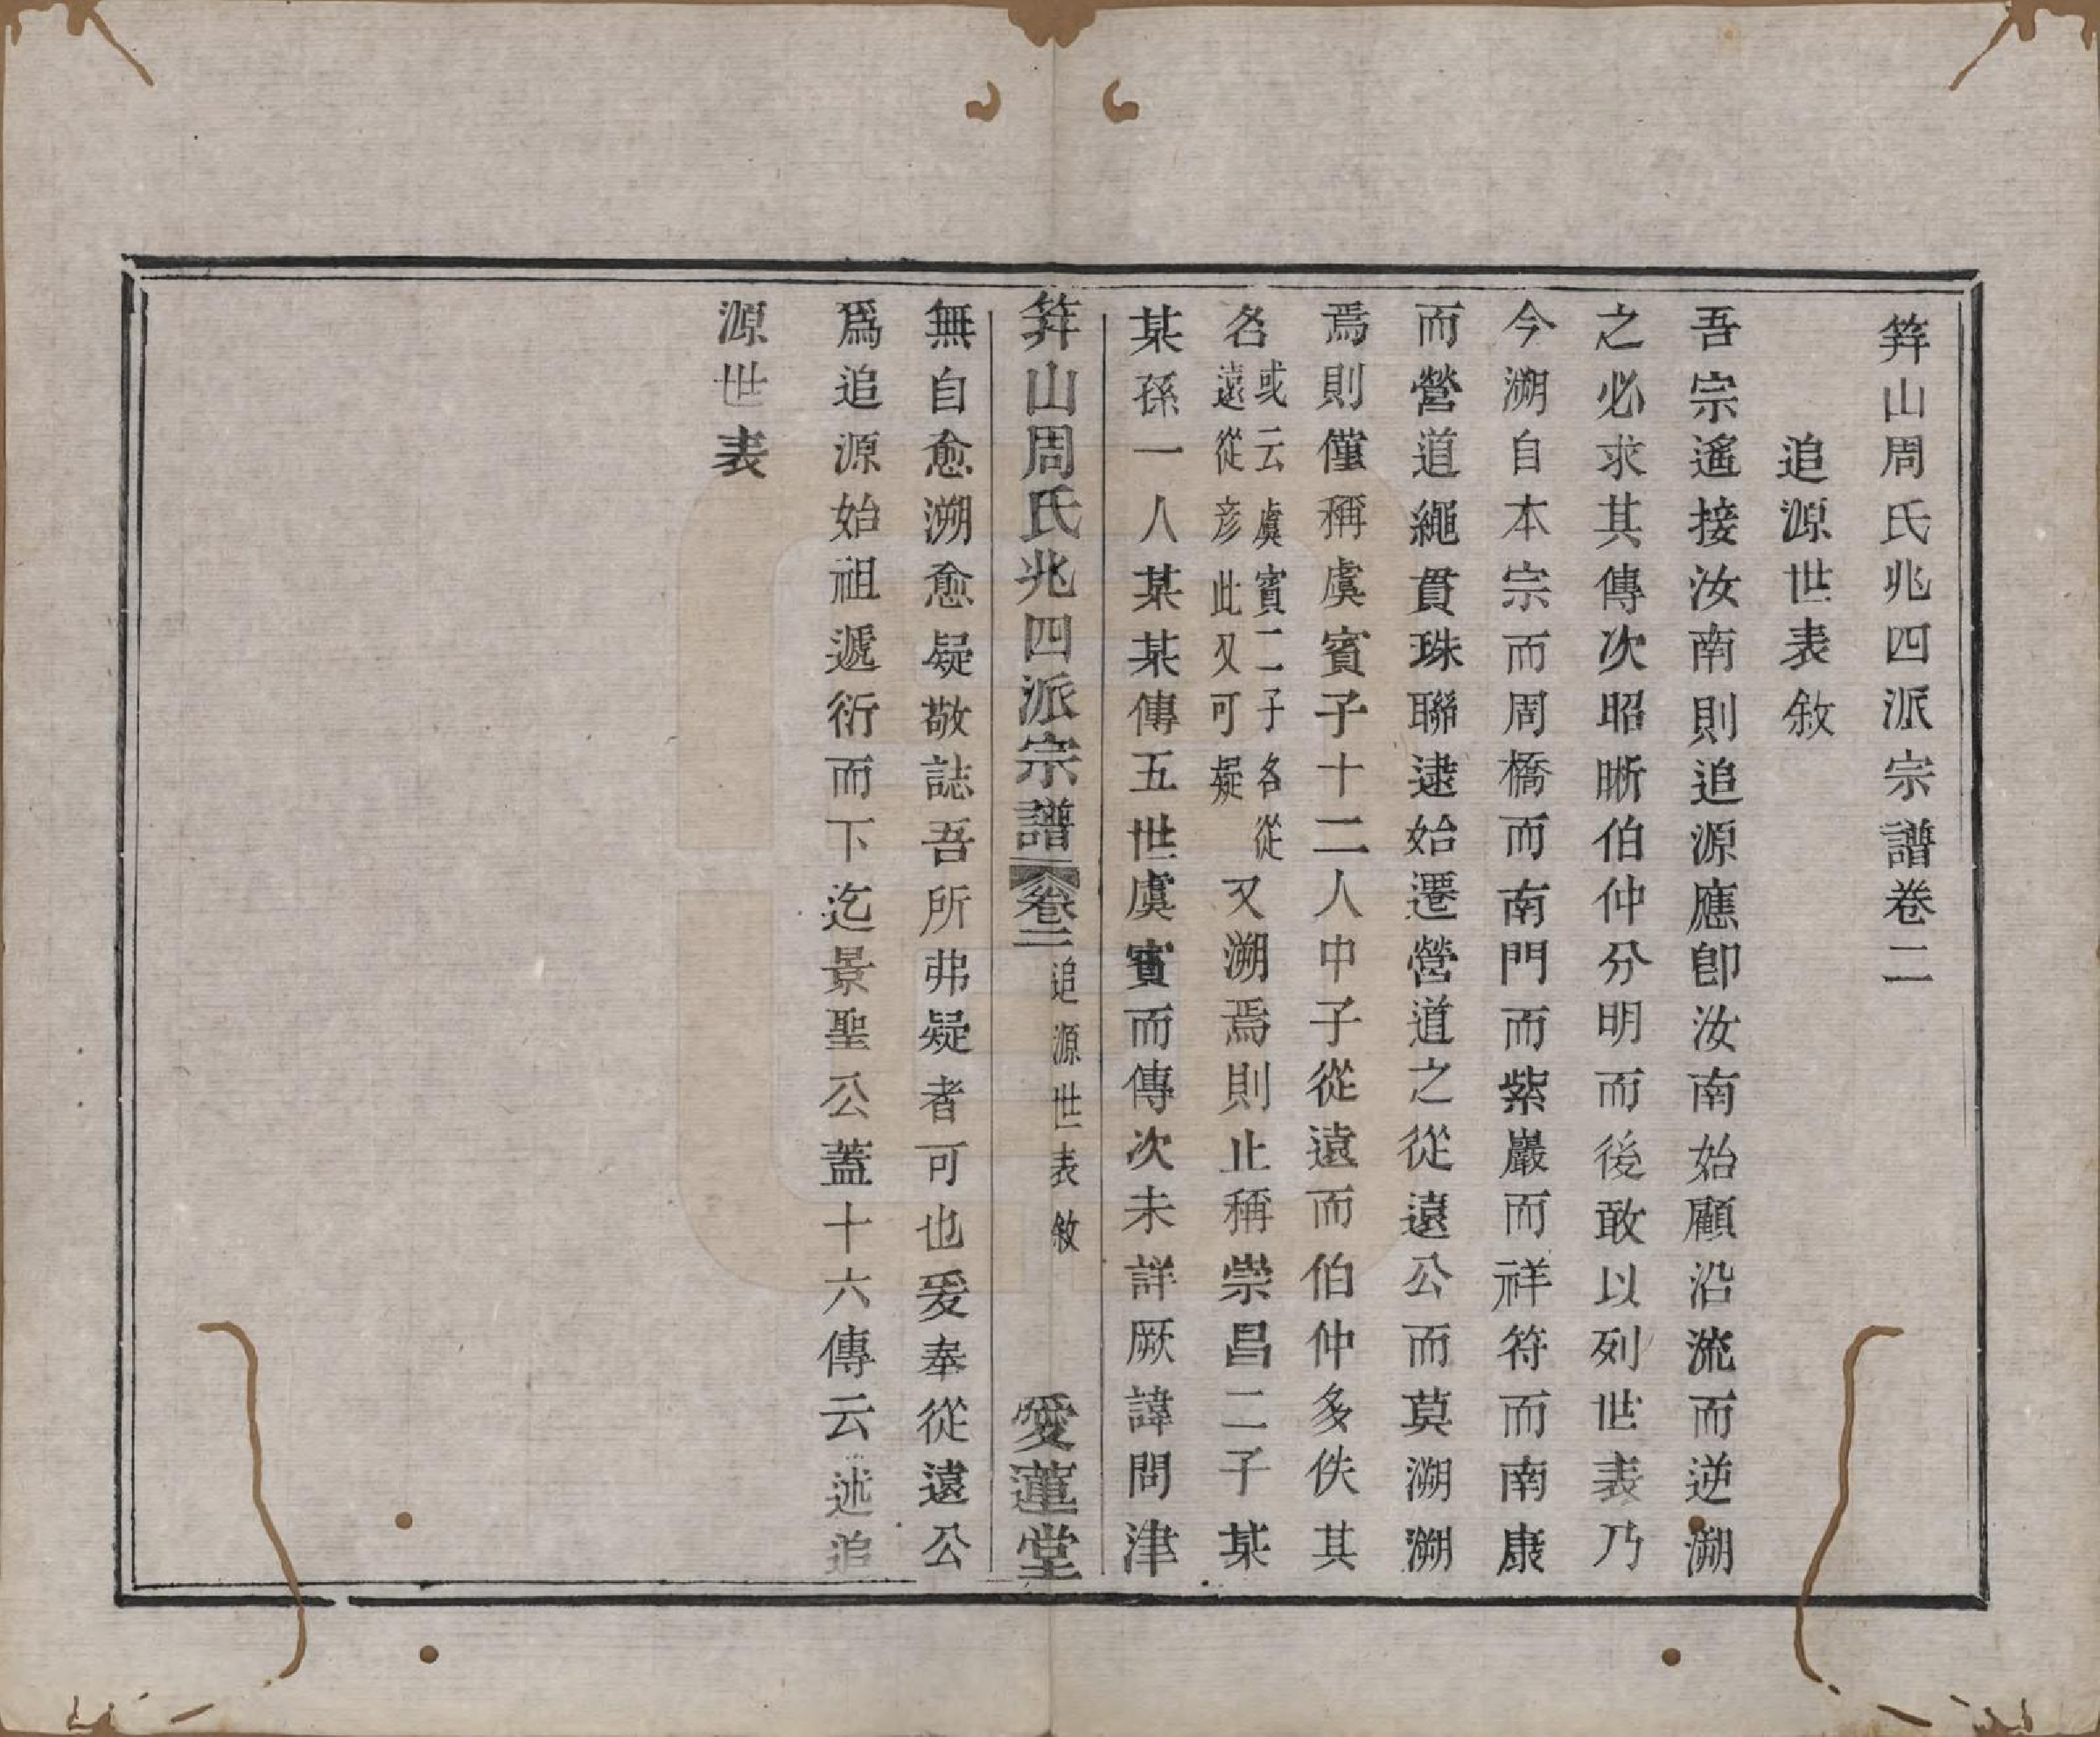 筓山周氏兆四派宗譜卷二
追源世表敘
吾宗遙接汝南則追源應卽汝南始顧沿流而逆溯
之必求其傳次昭晰伯仲分明而後敢以列世表乃
今溯自本宗而周橋而南門而紫巖而祥符而南康
而營道繩貫珠聯逮始遷營道之從遠公而莫溯溯
焉則僅稱虞賓子十二人中子從遠而伯仲多佚其
名或云虞賓二子名從遠從彥此又可疑又溯焉則止稱崇昌二子某
某孫一人某某傳五世虞賓而傳次未詳厥諱問津
筓山周氏兆四派宗譜 卷二 追源世表敘 愛蓮堂
無自愈溯愈疑敬誌吾所弗疑者可也爰奉從遠公
爲追源始祖遞衍而下迄景聖公蓋十六傳云述追
源世表